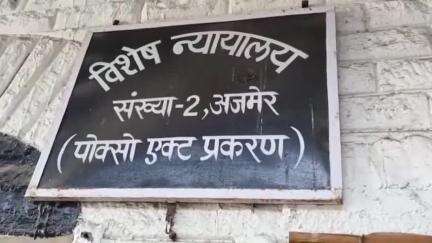 विशेष न्यायालय
संख्या-2,अजमेर
(पोक्सो एक्ट प्रकरण)